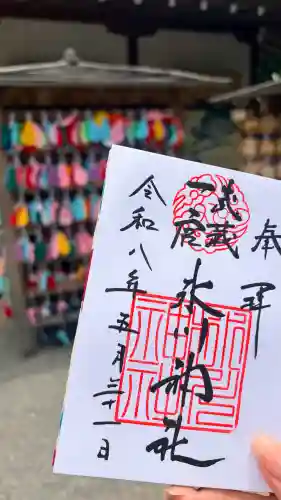 奉拝
武蔵
一宮
氷川神社
令和八年五月三十一日